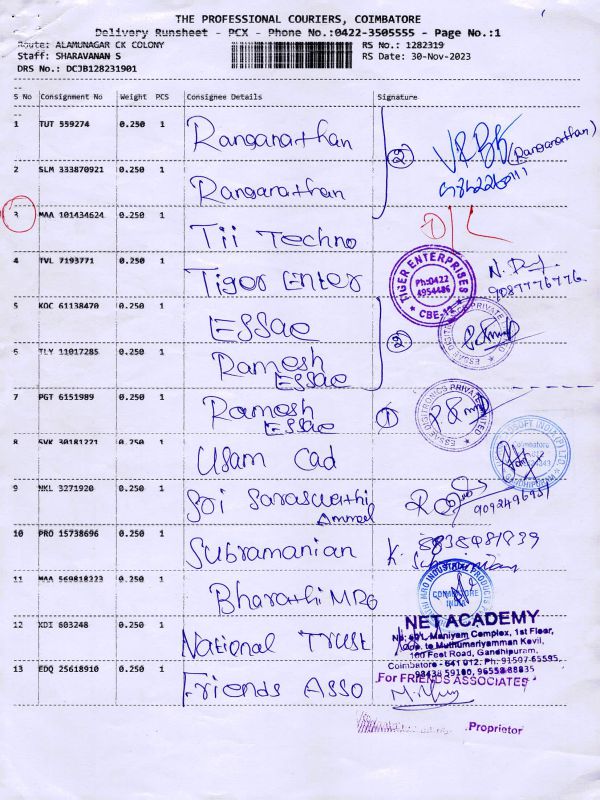 THE PROFESSIONAL COURIERS, COIMBATORE
Delivery Runsheet - PCX - Phone No.:0422-3505555 - Page No.:1
Route: ALAMUNAGAR CK COLONY RS No.: 1282319
Staff: SHARAVANAN S RS Date: 30-Nov-2023
DRS No.: DCJB128231901
S No Consignment No Weight PCS Consignee Details Signature
1 TUT 559274 0.250 1 Ranganathan
(2) (Ranganathan)
2 SLM 333870921 0.250 1 Ranganathan
3 MAA 101434624 0.250 1 Tii Techno D/L
4 TVL 7193771 0.250 1 Tiger Enter
TIGER ENTERPRISES Ph:0422 CBE-12
9087776776
5 KOC 61138470 0.250 1 ESSae
(2) ESSAE DIGITRONICS PRIVATE LIMITED
6 TLY 11017285 0.250 1 Ramesh
ESSae
7 PGT 6151989 0.250 1 Ramesh
ESSae
(1) ESSAE DIGITRONICS PRIVATE LIMITED
8 SVK 30181221 0.250 1 Usam Cad
9 NKL 3271920 0.250 1 Sri Saraswathi
Ammal
10 PRO 15738696 0.250 1 Subramanian K.
11 MAA 569818223 0.250 1 Bharathi MRO
MRO INDUSTRIAL PRODUCTS COIMBATORE INDIA
12 XDI 603248 0.250 1 National Trust
NET ACADEMY
Maniyam Complex, 1st Floor,
Muthumariyamman Kovil,
100 Feet Road, Gandhipuram,
Coimbatore - 641 012. Ph: 91507 65595,
13 EDQ 25618910 0.250 1 Friends Asso
For FRIENDS ASSOCIATES
Proprietor